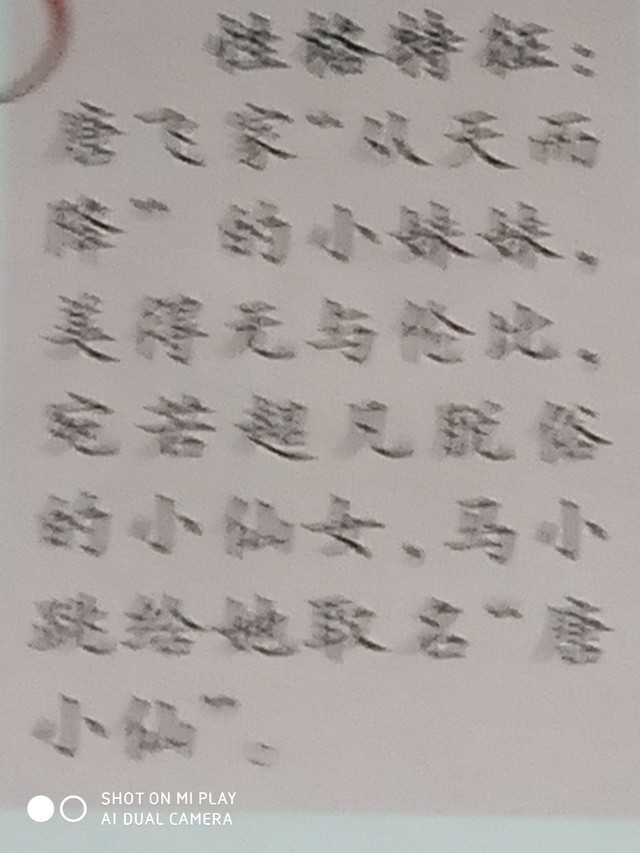 性格特征：
唐飞家“从天而
降”的小妹妹，
美得无与伦比，
宛若超凡脱俗
的小仙女，马小
跳给她取名“唐
小仙”。
SHOT ON MI PLAY
AI DUAL CAMERA